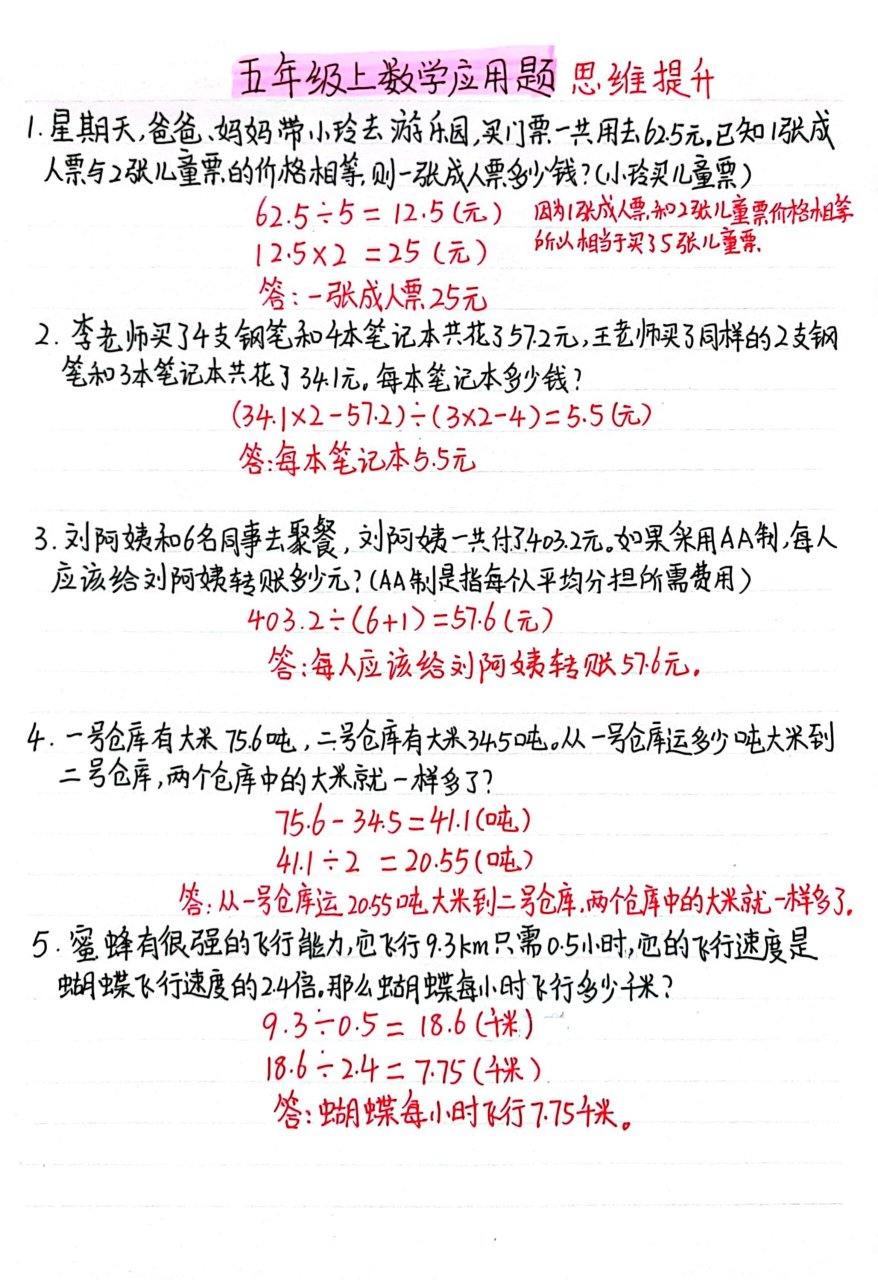 五年级上数学应用题 思维提升
1.星期天,爸爸、妈妈带小玲去游乐园,买门票一共用去62.5元。已知1张成
人票与2张儿童票的价格相等,则一张成人票多少钱?(小玲买儿童票)
62.5÷5=12.5(元) 因为1张成人票和2张儿童票价格相等
12.5×2=25(元) 所以相当于买了5张儿童票
答:一张成人票25元
2.李老师买了4支钢笔和4本笔记本共花了57.2元,王老师买了同样的2支钢
笔和3本笔记本共花了34.1元。每本笔记本多少钱?
(34.1×2-57.2)÷(3×2-4)=5.5(元)
答:每本笔记本5.5元
3.刘阿姨和6名同事去聚餐,刘阿姨一共付了403.2元。如果采用AA制,每人
应该给刘阿姨转账多少元?(AA制是指每个人平均分担所需费用)
403.2÷(6+1)=57.6(元)
答:每人应该给刘阿姨转账57.6元。
4.一号仓库有大米75.6吨,二号仓库有大米34.5吨。从一号仓库运多少吨大米到
二号仓库,两个仓库中的大米就一样多了?
75.6-34.5=41.1(吨)
41.1÷2=20.55(吨)
答:从一号仓库运20.55吨大米到二号仓库,两个仓库中的大米就一样多了。
5.蜜蜂有很强的飞行能力,它飞行9.3km只需0.5小时,它的飞行速度是
蝴蝶飞行速度的2.4倍。那么蝴蝶每小时飞行多少千米?
9.3÷0.5=18.6(千米)
18.6÷2.4=7.75(千米)
答:蝴蝶每小时飞行7.75千米。